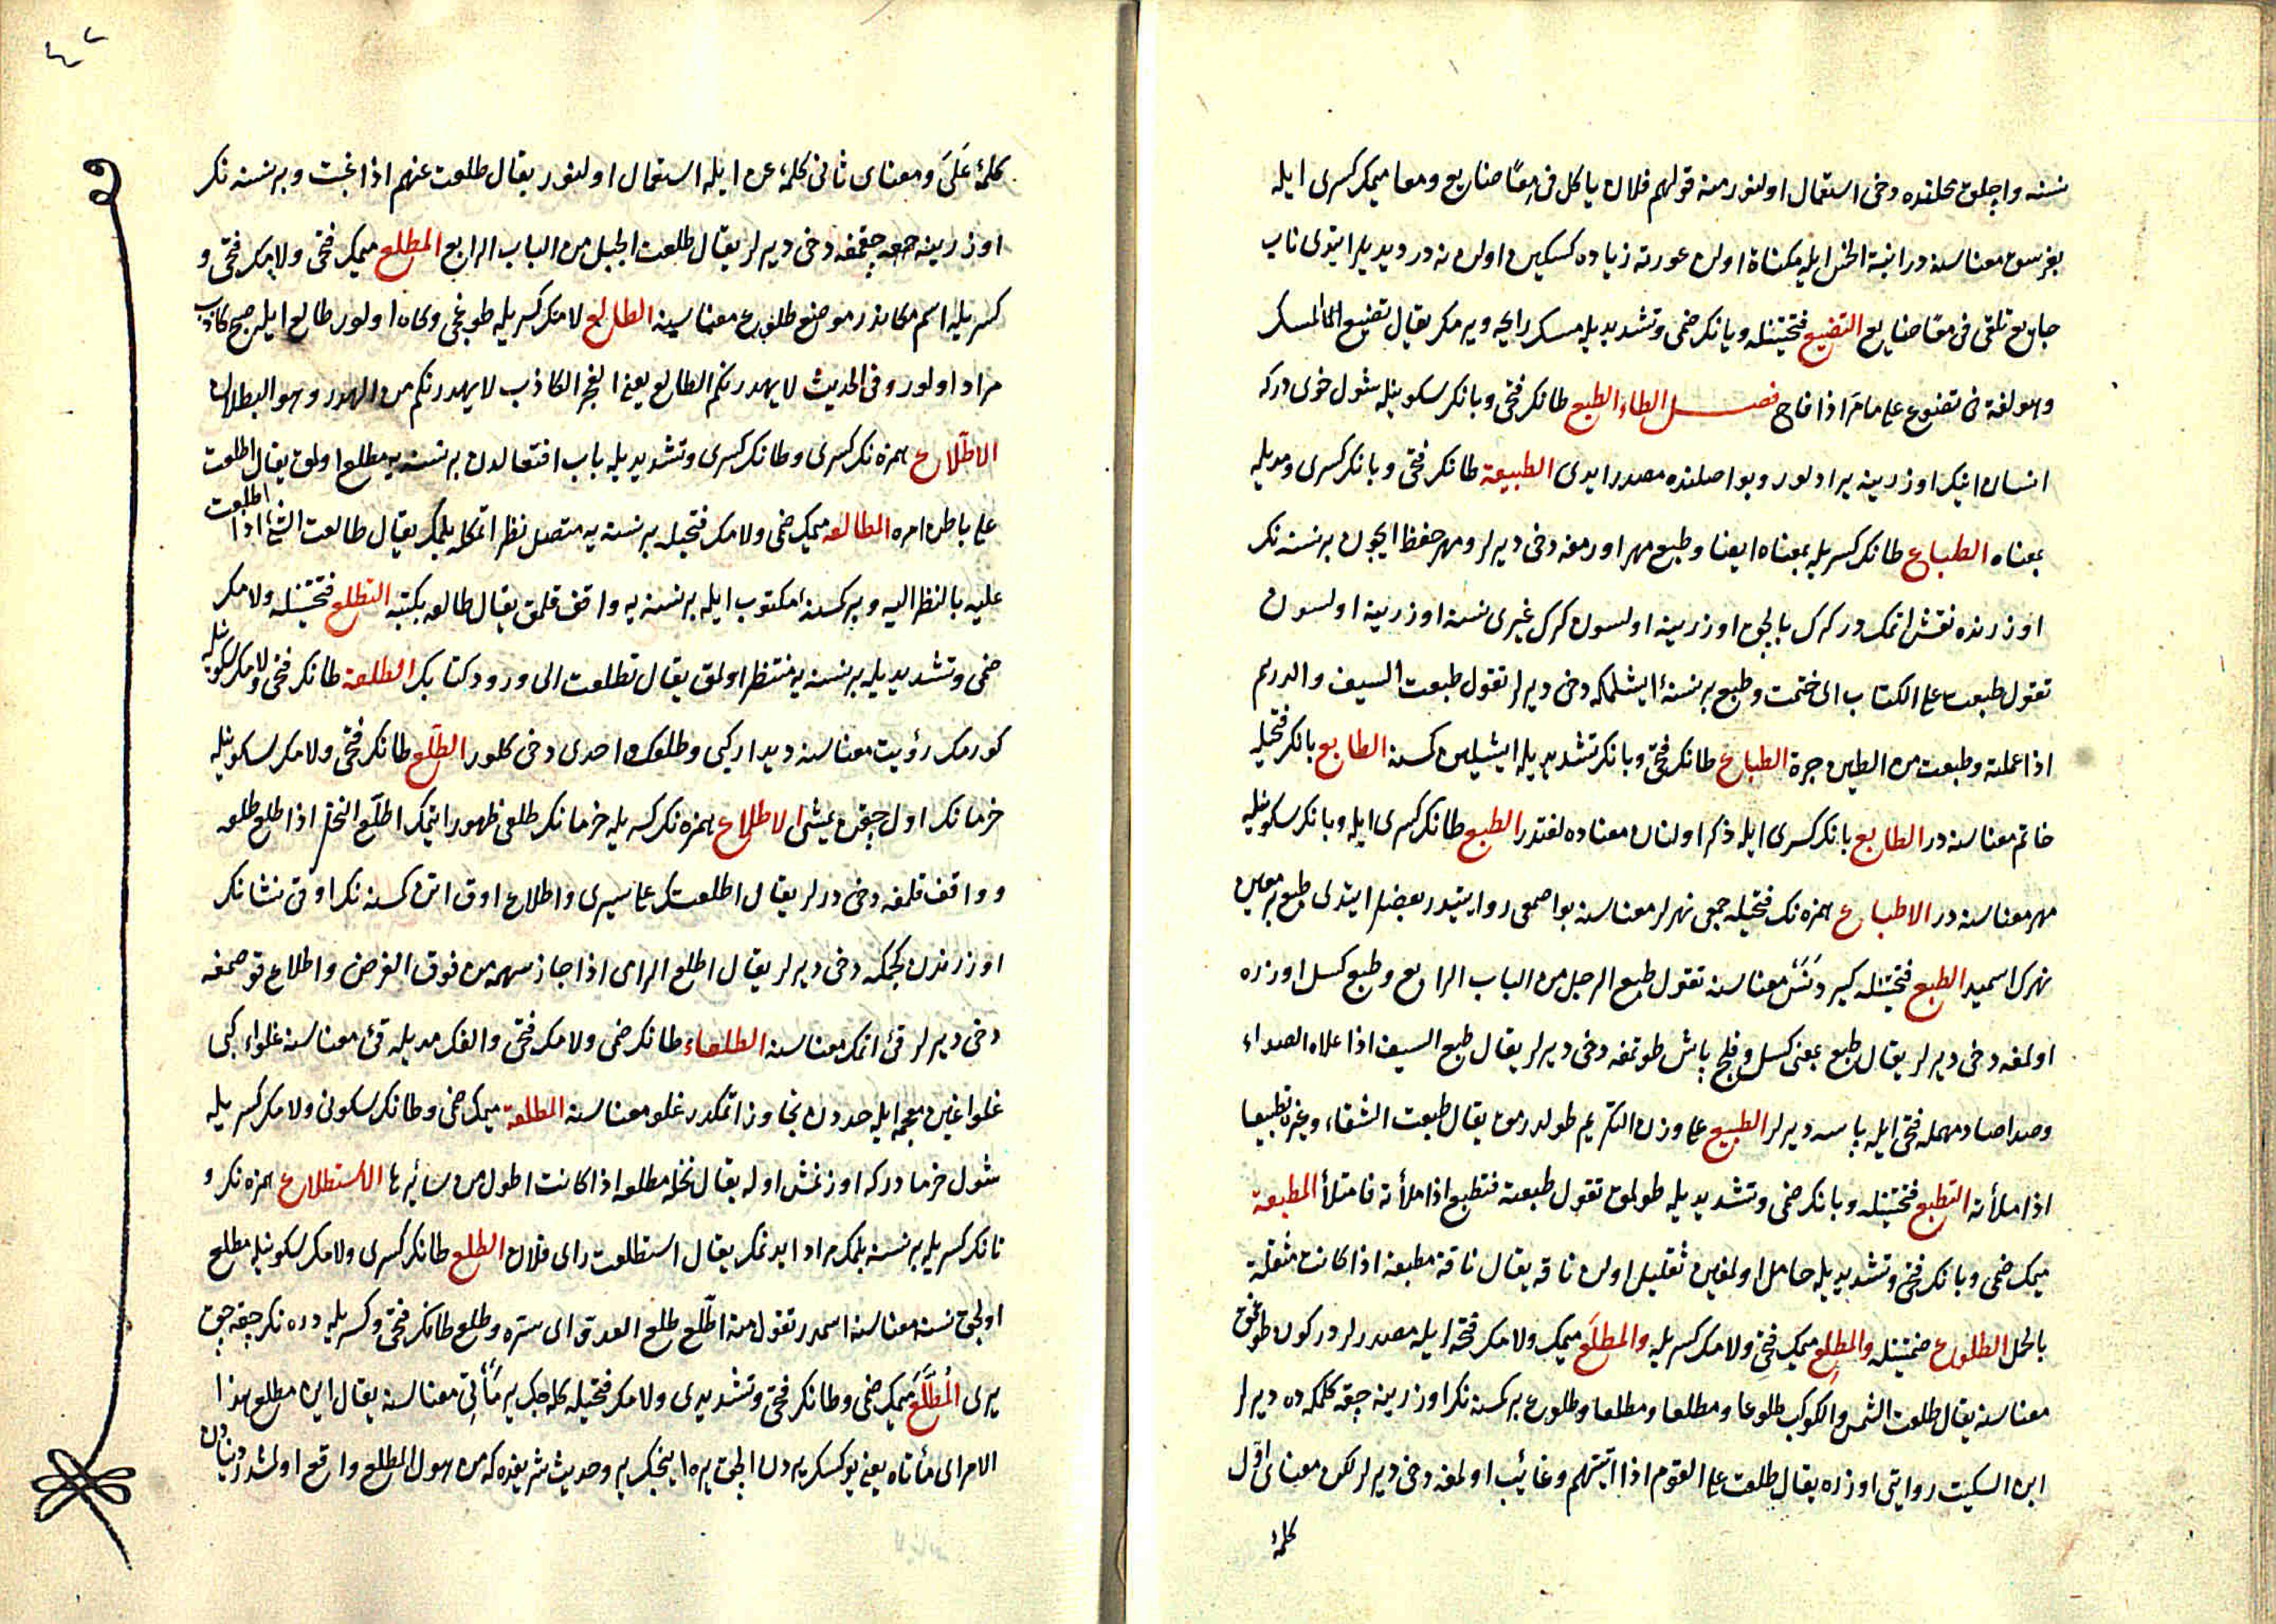 نسنه واچلق محلنده دخی استعمال اولنور منه قولهم فلان یاکل فی معًا ضایع ومعا میمک کسری ایله
بغرسق معناسنه در ابنة الخس ایله مکناة اولن عورته زیاده کسکین اولن نه در دیدیلر ایتدی ناب
جایع تلقی فی معًا ضایع التضیع فتحتینله ویانک ضمی وتشدیدیله مسک رایحه ویرمک یقال تضیع المسک
وهو لغة فی تضوع علی مامر اذا فاح فصل الطاء الطبع طانک فتحی وبانک سکونیله شول خوی درکه
انسان انک اوزرینه یرادلور وبو اصلنده مصدر ایدی الطبیعة طانک فتحی وبانک کسری ومدیله
بمعناه الطباع طانک کسریله بمعناه ایضا وطبع مهر اورمغه دخی دیرلر ومهر حفظ ایچون برنسنه نک
اوزرنده نقش اتمک در کرک بالچق اوزرینه اولسون کرک غیری نسنه اوزرینه اولسون
تقول طبعت علی الکتاب ای ختمت وطبع برنسنهٔ ایشلمکه دخی دیرلر تقول طبعت السیف والدرهم
اذا عملته وطبعت من الطین جرة الطباع طانک فتحی وبانک تشدیدیله ایشلین کسنه الطابع بانک فتحیله
خاتم معناسنه در الطابع بانک کسری ایله ذکر اولنان معناده لغتدر الطبع طانک کسری ایله وبانک سکونیله
نهر معناسنه در الاطباع همزه نک فتحیله جمعی نهرلر معناسنه بو اصمعی روایتیدر بعضلر ایتدی طبع بر معین
نهرک اسمیدر الطبع فتحتینله کیر دنس معناسنه تقول طبع الرجل من الباب الرابع وطبع کسل اوزره
اولمغه دخی دیرلر یقال طبع بمعنی کسل وقلج پاس طوتمغه دخی دیرلر یقال طبع السیف اذا علاه الصداء
وصدا صاد مهمله فتحی ایله پاسه دیرلر الطبیع علی وزن التکریم طولدرمق یقال طبعت السقاء وغیره تطبیعا
اذا ملأته التطبع فتحتینله وبانک ضمی وتشدیدیله طولمق تقول طبعته فتطبع اذا ملأته فامتلأ المطبعة
میمک ضمی وبانک فتحی وتشدیدیله حامل اولمغین ثقلیل اولن ناقه یقال ناقة مطبعة اذا کانت مثقلة
بالحمل الطلوع ضمتینله والمطلع میمک فتحی ولامک کسریله والمطلَع میمک ولامک فتحه لری ایله مصدرلر در کون طوغمق
معناسنه یقال طلعت الشمس والکوکب طلوعا ومطلعا ومطلعا وطلوع برکمسنه نک اوزرینه چقه کلمکه ده دیرلر
ابن السکیت روایتی اوزره یقال طلعت علی القوم اذا اتیتهم وغائب اولمغه دخی دیرلر لکن معنای اوّل
کلمهٔ
٤٢
کلمهٔ عَلَی ومعنای ثانی کلمهٔ عن ایله استعمال اولنور یقال طلعت عنهم اذا غبت وبرنسنه نک
اوزرینه چقمغه دخی دیرلر یقال طلعت الجبل من الباب الرابع المطلع میمک فتحی ولامک فتحی و
کسریله اسم مکاندر موضع طلوع معناسنه الطالع لامک کسریله طوغیجی وکاه اولور طالع ایله صبح کاذب
مراد اولور وفی الحدیث لا یهدرنکم الطالع یعنی الفجر الکاذب لا یهدرنکم من الهدر وهو البطلان
الاطّلاع همزه نک کسری وطانک کسری وتشدیدیله باب افتعالدن برنسنه یه مطلع اولمق یقال اطلعت
علی باطن امره المطالعه میمک ضمی ولامک فتحیله برنسنه یه متصل نظر اتمکله بلمک یقال طالعت الشئ اذا اطلعت
علیه بالنظر الیه وبرکمسنه مکتوب ایله برنسنه یه واقف قلمق یقال طالعه بکتبه التطلع فتحتینله ولامک
ضمی وتشدیدیله برنسنه یه منتظر اولمق یقال تطلعت الی ورود کتابک الطلعة طانک فتحی ولامک سکونیله
کورمک رؤیت معناسنه دیدار کبی وطلعک احدی دخی کلور الطلع طانک فتحی ولامک سکونیله
خرمانک اول چقن یمشی الاطلاع همزه نک کسریله خرمانک طلعی ظهور ایتمک اطلع النخل اذا طلع طلعه
وواقف قلمغه دخی دیرلر یقال اطلعتک علی سری واطلاع اوق اتن کمسنه نک اوقی نشانک
اوزرندن کچمکه دخی دیرلر یقال اطلع الرامی اذا جاز سهمه من فوق الغرض واطلاع قوصمغه
دخی دیرلر قئ اتمک معناسنه الطلعاء طانک ضمی ولامک فتحی والفک مدیله قئ معناسنه غلواء کبی
غلوا غین معجمه ایله حددن تجاوز اتمکدر غلو معناسنه المطلعة میمک ضمی وطانک سکونی ولامک کسریله
شول خرما درکه اوزنمش اوله یقال نخلة مطلعة اذا کانت اطول من سائرها الاستطلاع همزه نک و
تانک کسریله برنسنه بلمک مراد ایدنمک یقال استطلعت رأی فلان الطلع طانک کسری ولامک سکونیله مطلع
اولیجی نسنه معناسنه اسمدر تقول منه اطّلع طلع العدو ای سره وطلع طانک فتحی وکسریله دره نک چقه جق
یری المُطَّلَع میمک ضمی وطانک فتحی وتشدیدی ولامک فتحیله کله جک یر مأتی معناسنه یقال این مطلع هذا
الامر ای مأتاه یعنی یوکسک یردن الچق یره اینجک یر وحدیث شریفده که من هول المطلع واقع اولمشدر دنیادن